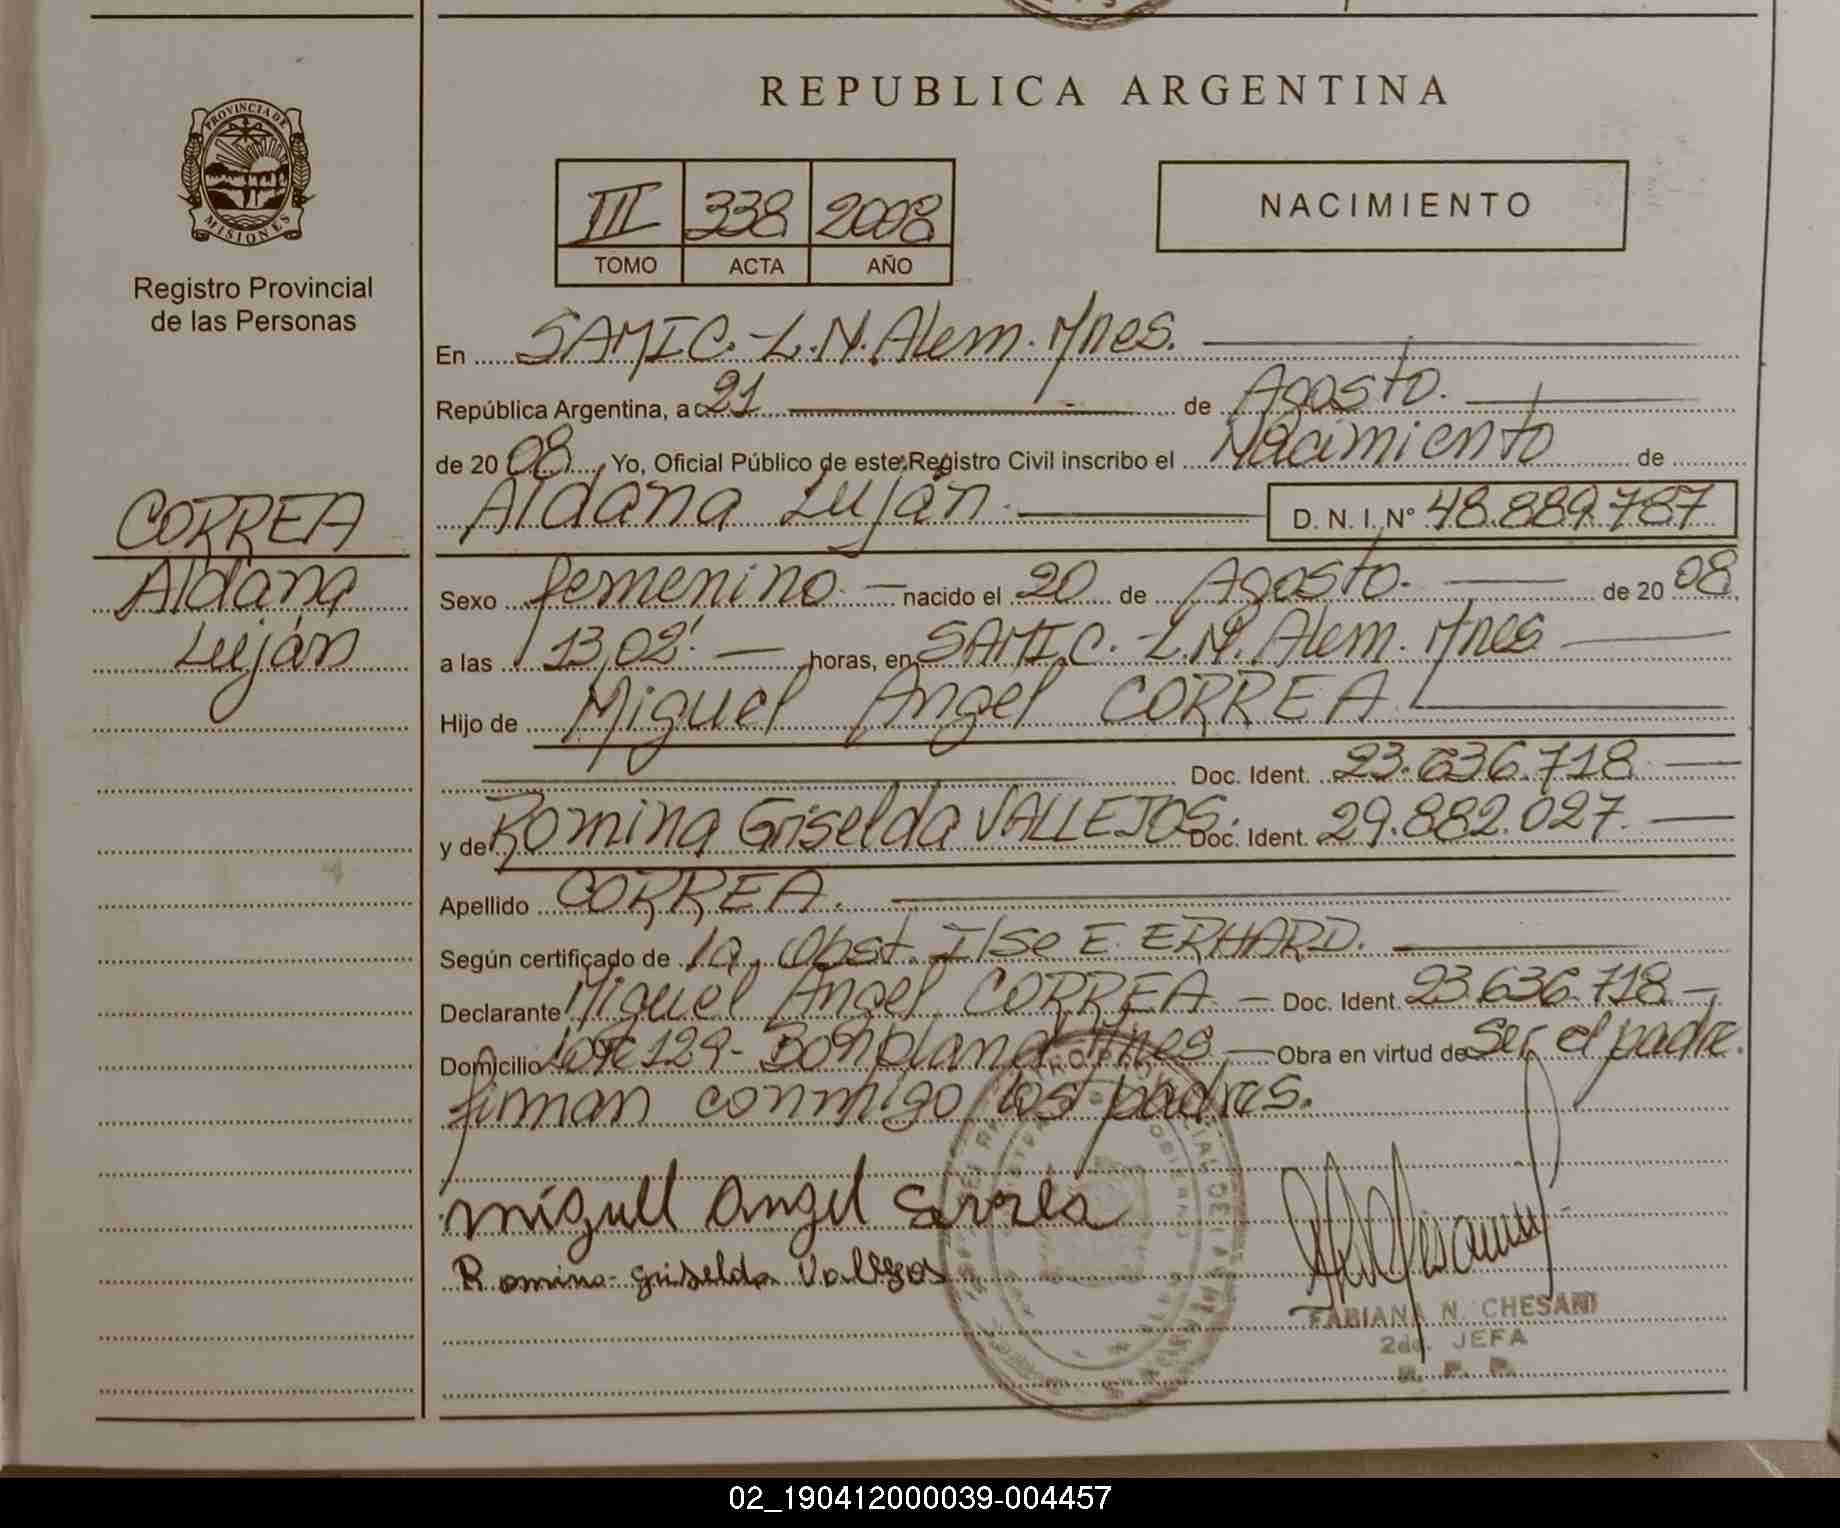 REPUBLICA ARGENTINA
PROVINCIA DE
MISIONES
Registro Provincial
de las Personas
III 338 2008
TOMO ACTA AÑO
NACIMIENTO
En SAMIC.-L.N.Alem.Mnes.
República Argentina, a 21 de Agosto.
de 2008, Yo, Oficial Público de este Registro Civil inscribo el Nacimiento de
CORREA
Aldana
Luján
Aldana Luján. D. N. I. N° 48.889.787
Sexo femenino.- nacido el 20 de Agosto. de 2008
a las 13,02'. horas, en SAMIC.-L.N.Alem.Mnes
Hijo de Miguel Angel CORREA
Doc. Ident. 23.636.718
y de Romina Griselda VALLEJOS. Doc. Ident. 29.882.027.
Apellido CORREA.
Según certificado de la Obst. Ilse E. ERHARD.
Declarante Miguel Angel CORREA - Doc. Ident. 23.636.718-
Domicilio Lote 129- Bonpland Mnes Obra en virtud de Ser el padre.
firman conmigo los padres.
Miguel Angel Correa
Romina Griselda Vallejos
FABIANA N. CHESANI
2da. JEFA
R. P. P.
02_190412000039-004457